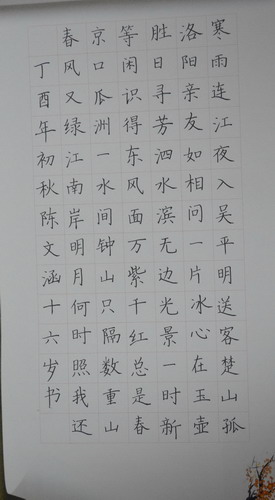 寒雨连江夜入吴平明送客楚山孤
洛阳亲友如相问一片冰心在玉壶
胜日寻芳泗水滨无边光景一时新
等闲识得东风面万紫千红总是春
京口瓜洲一水间钟山只隔数重山
春风又绿江南岸明月何时照我还
丁酉年初秋陈文涵十六岁书